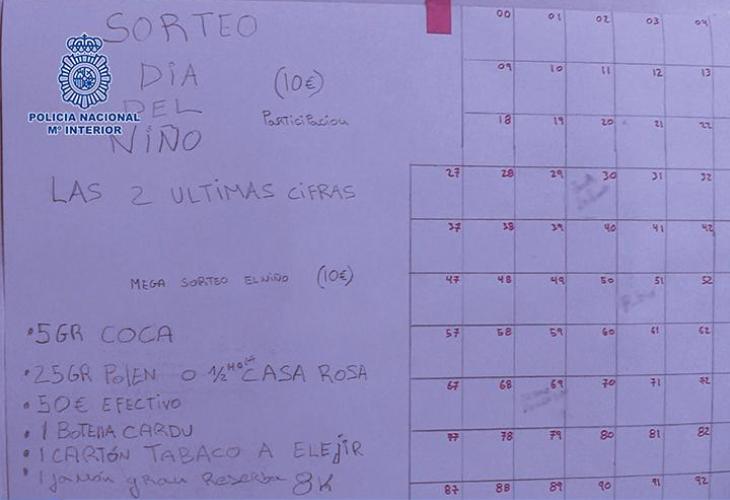 SORTEO
DIA
(10€)
POLICIA NACIONAL
Mº INTERIOR
DEL
Participacion
NIÑO
LAS 2 ULTIMAS CIFRAS
MEGA SORTEO EL NIÑO (10€)
• 5GR COCA
• 25GR POLEN O 1/2 CASA ROSA
• 50€ EFECTIVO
• 1 BOTELLA CARDU
• 1 CARTÓN TABACO A ELEJIR
• 1 jamón gran Reserva 8K
00 01 02 03 04
09 10 11 12 13
18 19 20 21 22
27 28 29 30 31 32
37 38 39 40 41 42
47 48 49 50 51 52
57 58 59 60 61 62
67 68 69 70 71 72
77 78 79 80 81 82
87 88 89 90 91 92